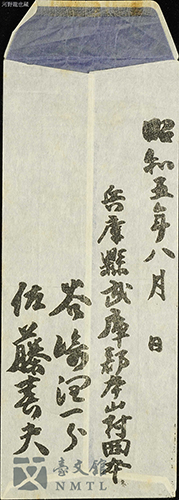 河野龍也藏
昭和五年八月　日
兵庫縣武庫郡本山村岡本
谷崎潤一郎
佐藤春夫
臺文館
NMTL